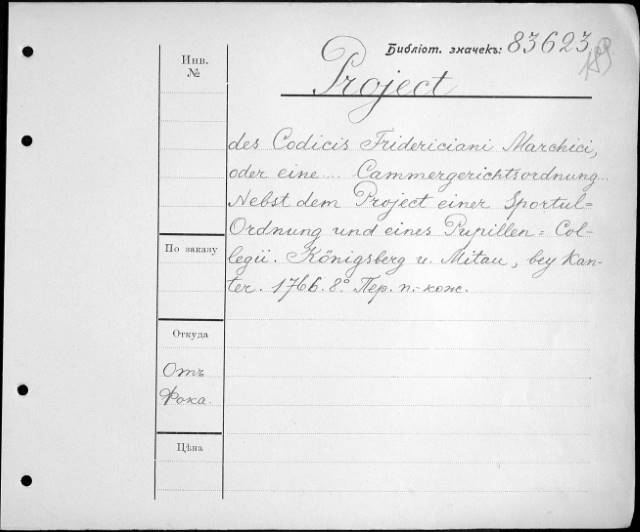 Библіот. значекъ: 83623
189
Инв. №
Project
des Codicis Fridericiani Marchici,
oder eine ... Cammergerichtsordnung...
Nebst dem Project einer Sportul=
Ordnung und eines Pupillen = Col-
legii. Königsberg u. Mitau, bey Kan-
ter. 1766. 8° Пер. п.-кож.
По заказу
Откуда
Отъ
Фока.
Цѣна